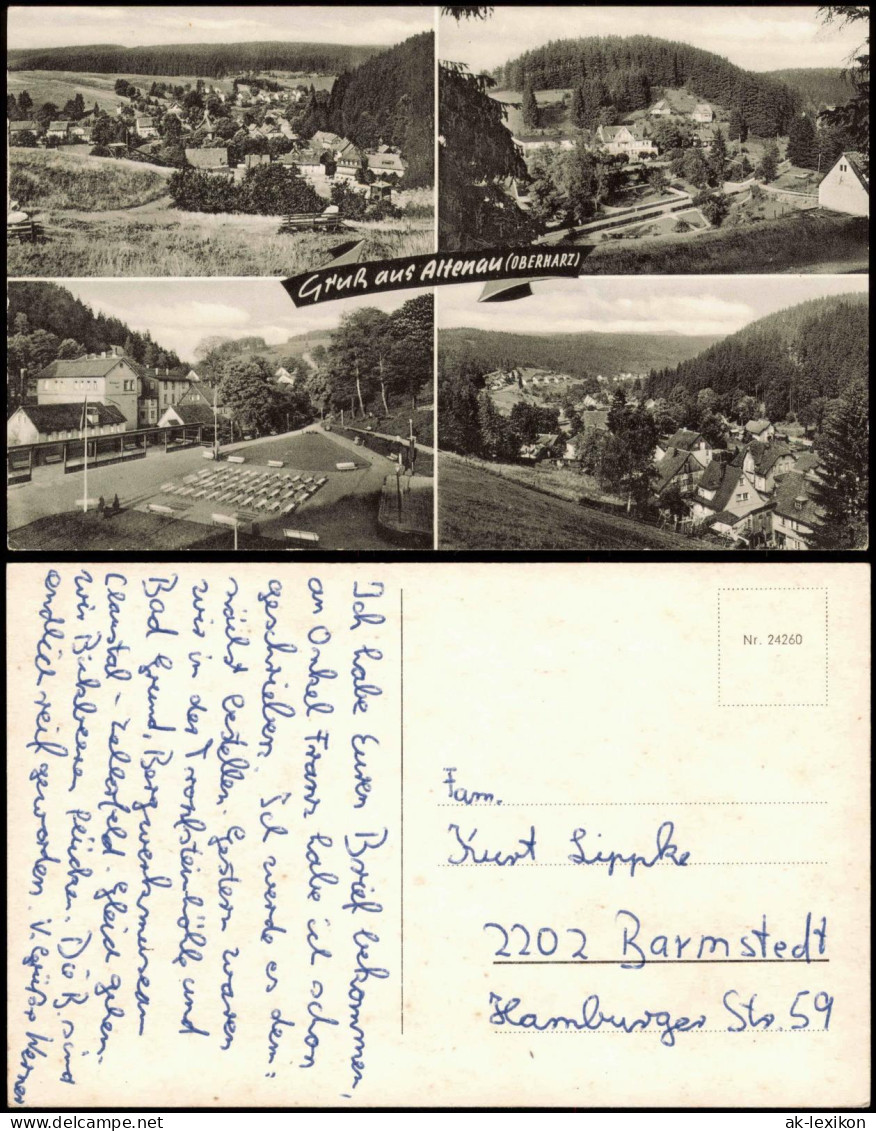 Gruß aus Altenau (OBERHARZ)
Ich habe Euren Brief bekommen,
an Onkel Franz habe ich schon
geschrieben. Ich werde es dem-
nächst bestellen. Gestern waren
wir in der Tropfsteinhölle und
Bad Grund, Bergwerksmuseum
Claustal-Zellerfeld. Gleich gehen
wir Bickbeeren pflücken. Die B. sind
endlich reif geworden. V. Grüße Werner
Nr. 24260
Fam.
Kurt Lippke
2202 Barmstedt
Hamburger Str. 59
ak-lexikon.com